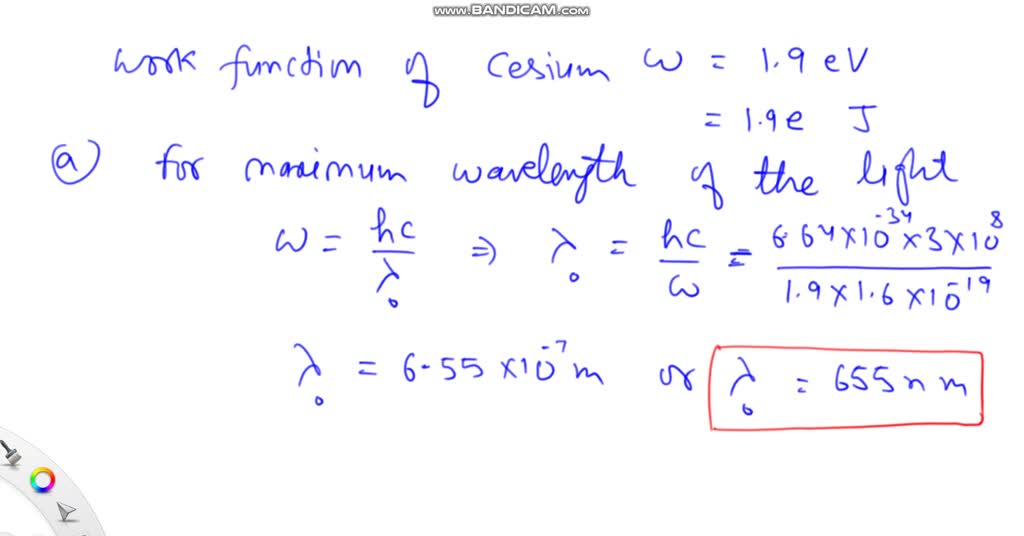 www.BANDICAM.com
work function of cesium ω = 1.9 eV
= 1.9e J
(a) for maximum wavelength of the light
ω = hc/λ₀ ⇒ λ₀ = hc/ω = 6.64×10⁻³⁴×3×10⁸/1.9×1.6×10⁻¹⁹
λ₀ = 6.55×10⁻⁷ m or λ₀ = 655 nm